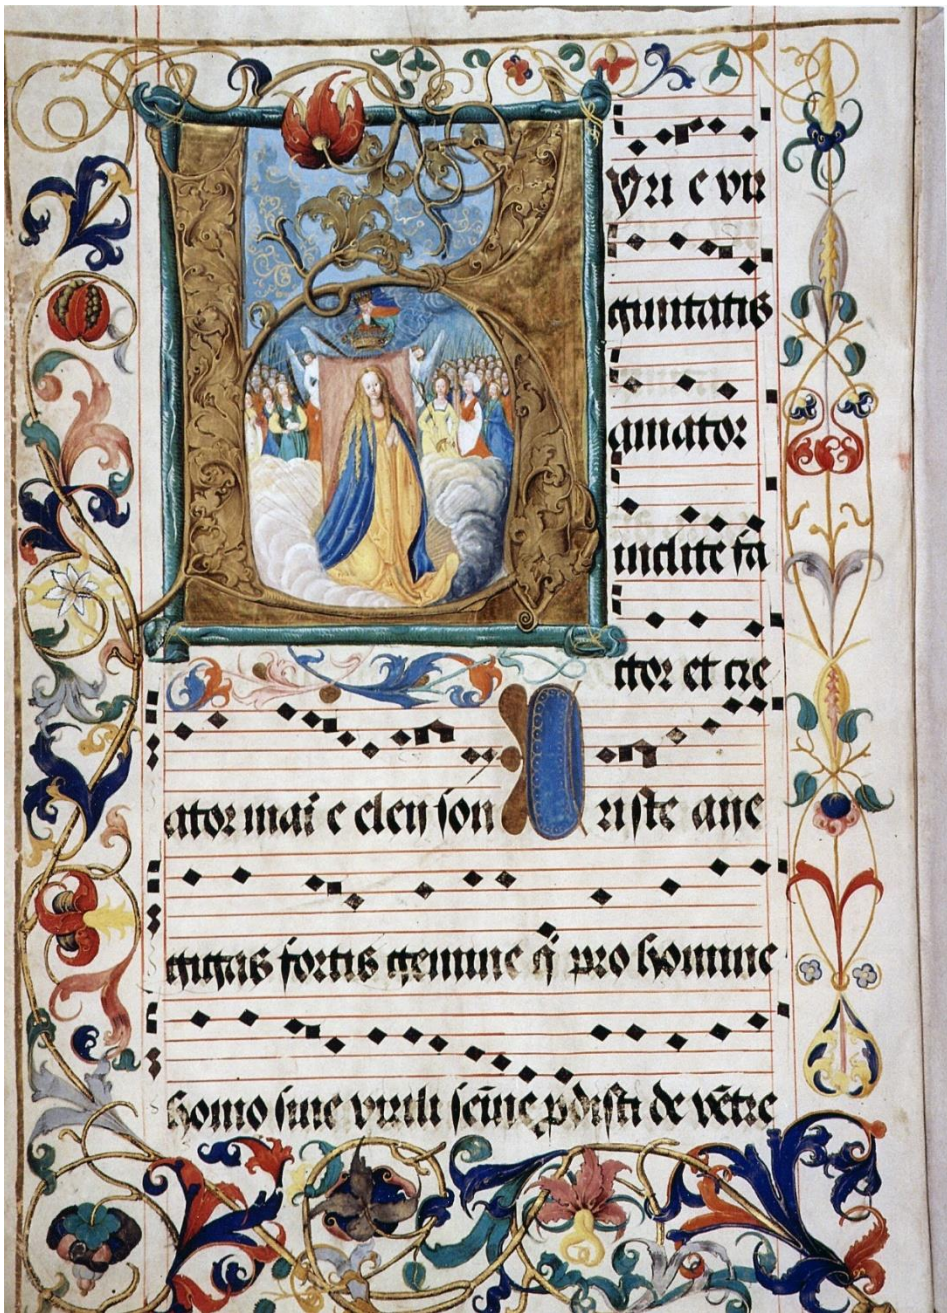 Kyri e vir
ginitatis
amator
inclite fa
ctor et cre
ator mar̄ e eleyson Xriste aue
gigas fortis gemine q̄ pro homine
homo sine virili semīe pdisti de vētre